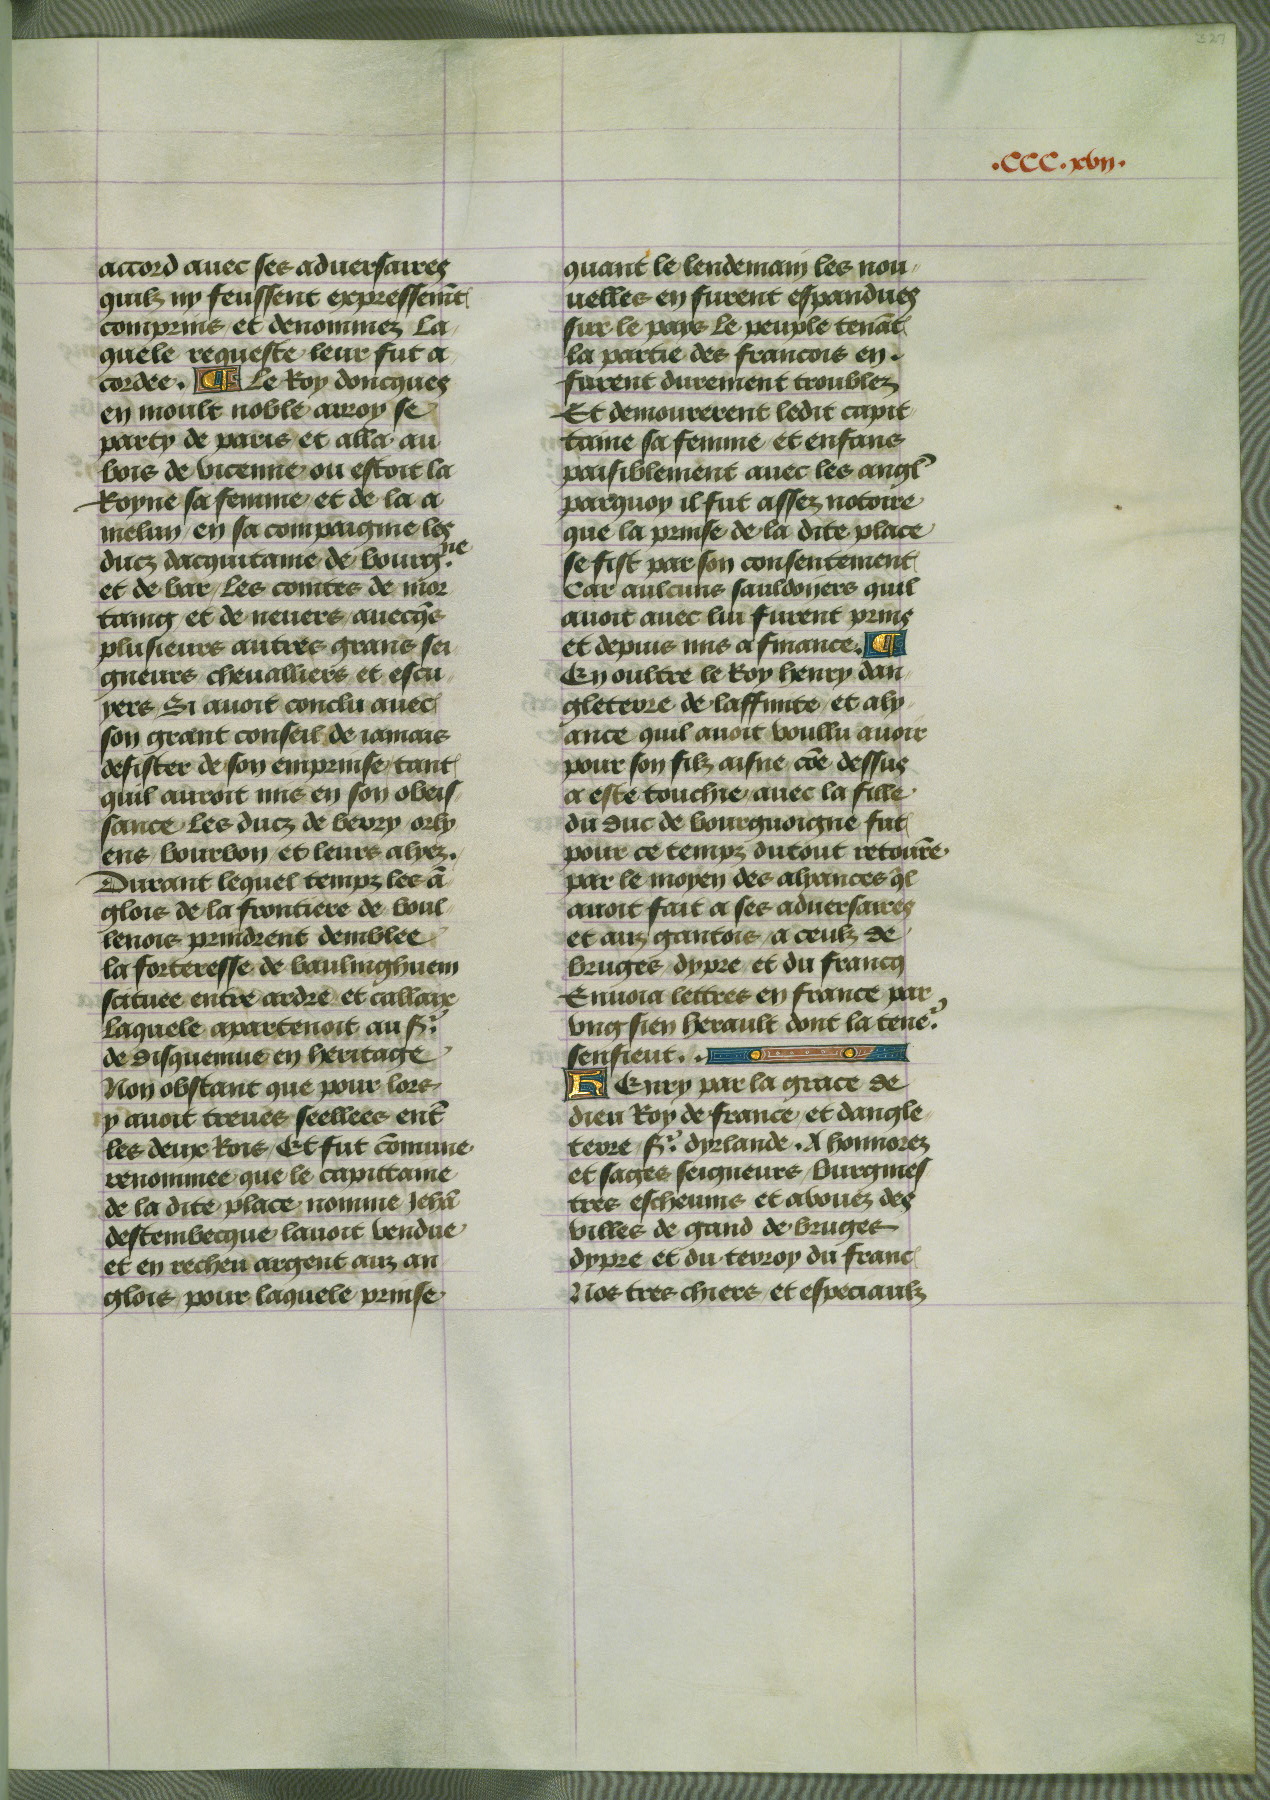 327
.CCC.xvij.
accord auec ses aduersaires
quilz ny feussent expressem̃t
comprins et denommez La
quele requeste leur fut a
cordee. ¶ Le Roy doncques
en moult noble arroy se
party de paris et alla au
bois de vicenne ou estoit la
Royne sa femme et de la a
melun en sa compaignie les
ducz dacquitaine de bourg.ne
et de bar, Les contes de mor
taing et de neuers auecq̃s
plusieurs autres grans sei
gneurs cheualliers et escu
yers Si auoit conclu auec
son grant conseil de iamais
desister de son emprinse tant
quil auroit mis en son obeis
sance Les ducz de berry orly
ens bourbon et leurs alyez.
Durant lequel tempz les ã
glois de la frontiere de boul
lenois prindrent demblee
la forteresse de baulinghuem
scituee entre ardre et callaix
Laquele apartenoit au sr
de disquemue en heritage
Non obstant que pour lors
y auoit treues seellees ent̃
les deux Rois Et fut cõmune
renommee que le capittaine
de la dite place nomme Jehã
destembecque lauoit vendue
et en recheu argent auz an
glois pour laquele prinse
quant le lendemain les nou
uelles en furent espandues
sur le pays Le peuple tenãt
la partie des francois en .
furent durement troublez
Et demourerent ledit capit
taine sa femme et enfans
paisiblement auec les angl'
parquoy il fut assez notoire
que la prinse de la dite place
se fist par son consentement
Car aulcuns sauldoyers quil
auoit auec lui furent prins
et depuis mis a finance. ¶
En oultre le Roy henry dan
gleterre de laffinite et aly
ance quil auoit voullu auoir
pour son filz aisne cõe dessus
a este touchie auec la fille
du duc de bourguoigne fut
pour ce tempz dutout retourẽ
par le moyen des alyances q̃l
auoit fait a ses aduersaires
et auz gantois a ceulz de
bruges dypre et du francq
Enuoia lettres en france par
vng sien herault dont la tene.r
sensieut. .
HEnry par la grace de
dieu Roy de france et dangle
terre sr dyrlande . A honnorez
et sages seigneurs Burgmes
tres escheuins et aduouez des
villes de gand de bruges
dypre et du terroy du franc
Nos tres chiers et especiaulz